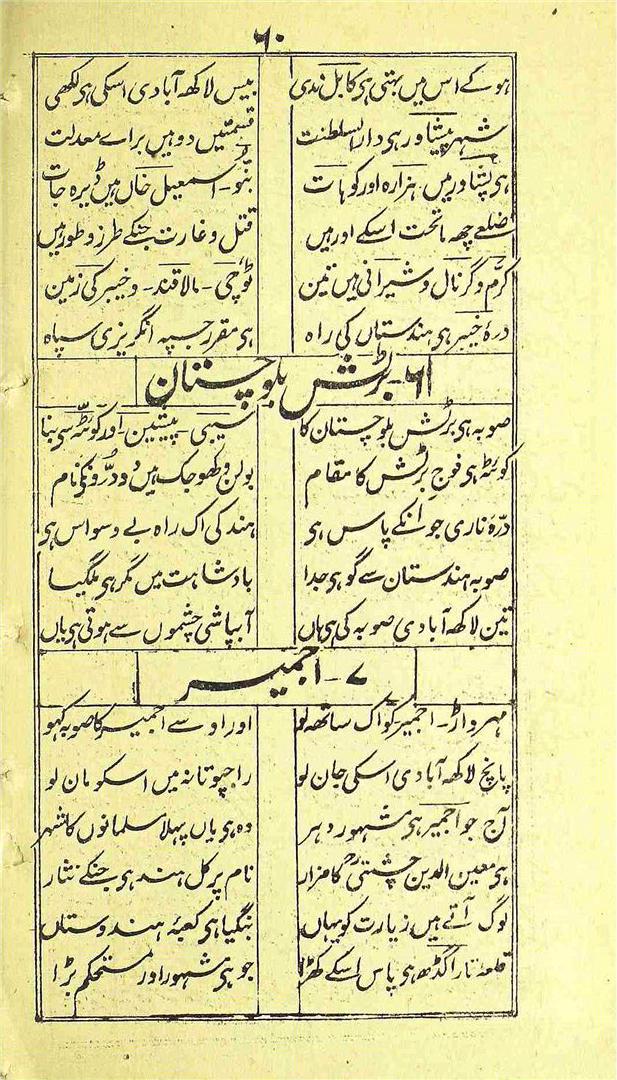 ۶۰
ہو کے اس میں بہتی ہی کابل ندی بیس لاکھ آبادی اسکی ہی لکھی
شہر پشاور ہی دار السلطنت قسمتیں دو ہیں براے معدلت
ہی پشاور میں ہزارہ اور کوہات بنّو - اسمعیل خاں ہیں ڈیرہ جات
ضلعے چھ ماتحت اسکے اور ہیں قتل و غارت جنکے طرز و طور ہیں
کرّم و گرنال و شیرانی ہیں تین ٹوچی - مالاقند - و خیبر کی زمین
درہٴ خیبر ہی ہندستاں کی راہ ہی مقرر جسپہ انگریزی سپاہ
۶- برٹش بلوچستان
صوبہ ہی برٹش بلوچستان کا سیبی - پیشین - اور کوئٹہ سی بنا
کوئٹہ ہی فوج برٹش کا مقام بولن و کھوجک ہیں دو درّونکی نام
درّہ ناری جو انکے پاس ہی ہند کی اک راہ بے وسواس ہی
صوبہ ہندستان سے گو ہی جدا بادشاہت میں مگر ہی ملگیا
تین لاکھ آبادی صوبہ کی ہی ہاں آبپاشی چشموں سے ہوتی ہی یاں
۷- اجمیر
مہرواڑ - اجمیر کو اک ساتھ لو اور او سے اجمیر کا صوبہ کہو
پانچ لاکھ آبادی اسکی جان لو راجپوتانہ میں اسکو مان لو
آج جو اجمیر ہی مشہور دہر وہ ہی یاں پہلا مسلمانوں کا شہر
ہی معین الدین چشتیؒ کا مزار نام پر کل ہند ہی جنکے نثار
لوگ آتے ہیں زیارت کو یہاں بنگیا ہی کعبہٴ ہندوستاں
قلعہ تاراگڈھ ہی پاس اسکے کھڑا جو ہی مشہور اور مستحکم بڑا